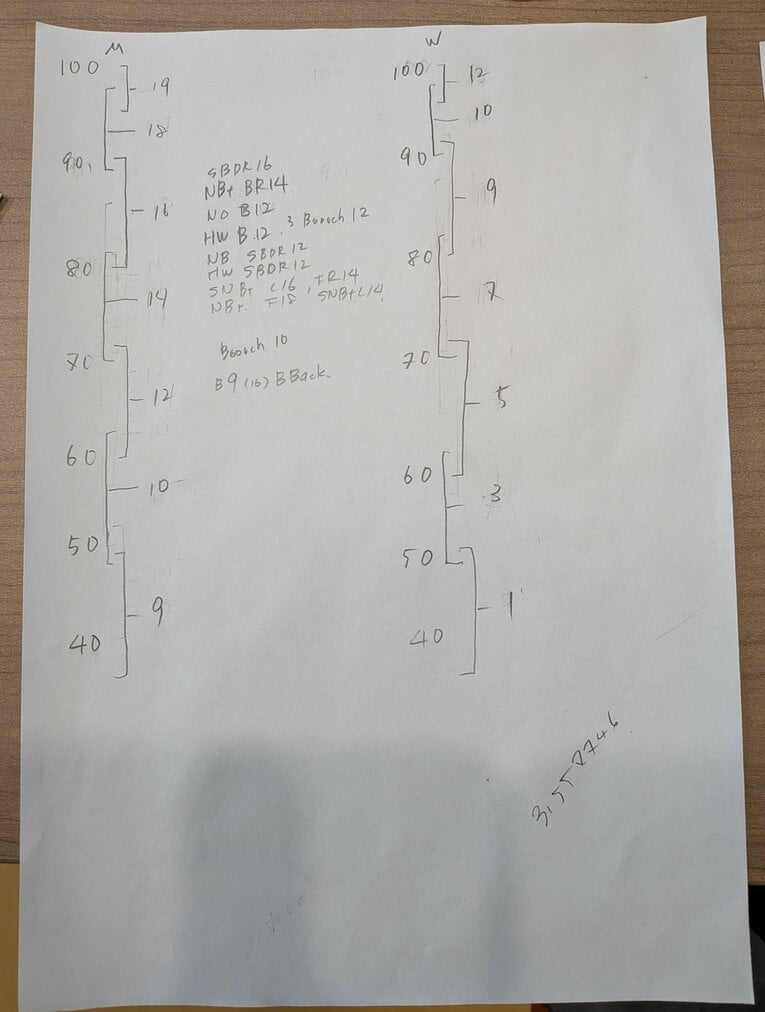 M
100
19
18
90
16
80
14
70
12
60
10
50
9
40
SBDR16
NB+ BR14
NO B12
HW B.12 . 3 Booch 12
NB SBDR12
HW SBDR12
SNB+ L16 , FR14
NB+. F18 SNB+L14,
10
B9 (16) BBack.
W
100
12
10
90
9
80
7
70
5
60
3
50
1
40